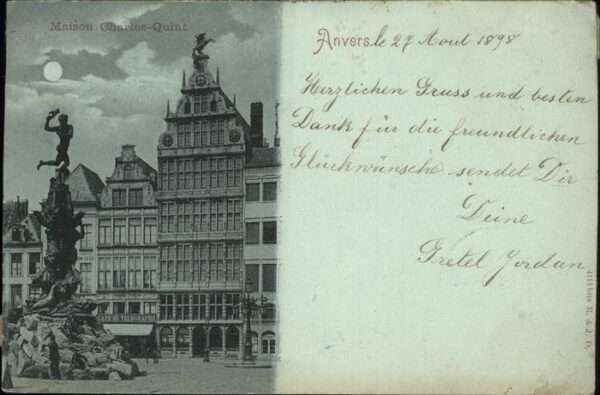 Maison Charles-Quint
Anvers, le 27 Aout 1898
Herzlichen Gruss und besten
Dank für die freundlichen
Glückwünsche sendet Dir
Deine
Gretel Jordan